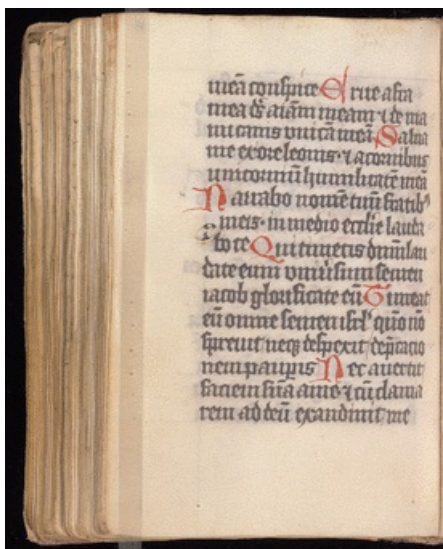 meā conspice Erue a fra
mea ds̄ aīam meam ⁊ de ma
nu canis vnicā meā Salua
me ex ore leonis ⁊ a cornibus
unicornuū humilitatē meā
Narrabo nomē tuū fratibꝰ
meis in medio ecclie lauda
bo te Qui timetis dnm̄ lau
date eum vniūsum semen
iacob glorificate eū Timeat
eū omne semen isrl̓ qm̄o nō
spreuit neqꝫ despexit dep̄catio
nem paup̱is Nec auertit
faciem suā a me ⁊ cū clama
rem ad deū exaudiuit me